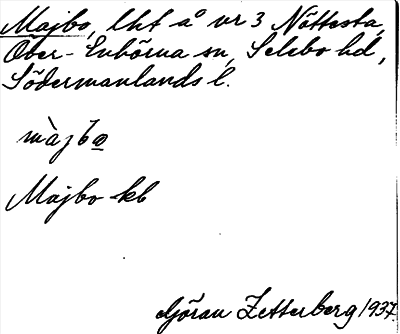 Majbo, lht å nr 3 Nöttesta,
Över-Enhörna sn, Selebo hd,
Södermanlands l.
màjbω
Majbo kb
Göran Zetterberg 1937.